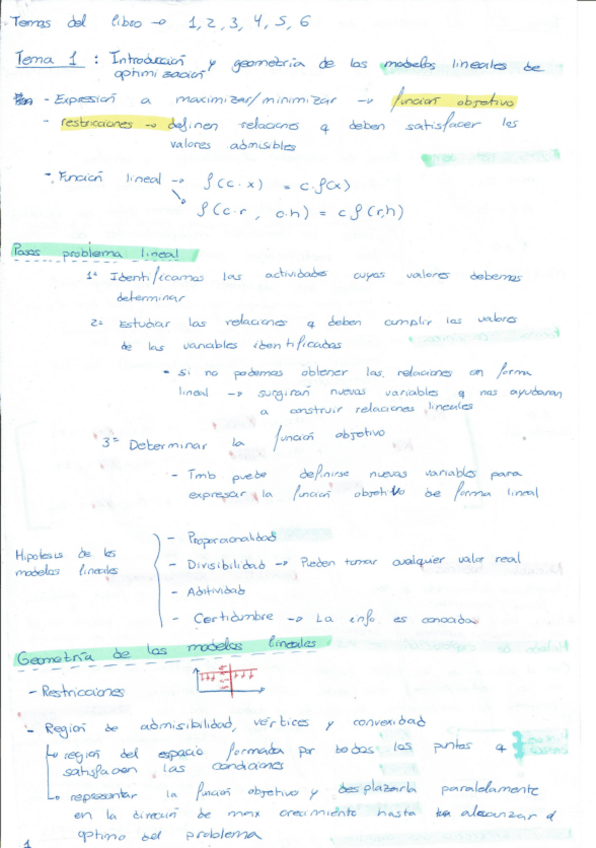 Temas del libro → 1, 2, 3, 4, 5, 6
Tema 1 : Introducción y geometría de los modelos lineales de
optimización
- Expresión a maximizar/minimizar → función objetivo
- restricciones → definen relaciones q deben satisfacer los
valores admisibles
- Función lineal → f(c·x) = c·f(x)
f(c·r, c·h) = c f(r,h)
Pasos problema lineal
1º Identificamos las actividades cuyos valores debemos
determinar
2º Estudiar las relaciones q deben cumplir los valores
de las variables identificadas
- si no podemos obtener las relaciones en forma
lineal → surgirán nuevas variables q nos ayudaran
a construir relaciones lineales
3º Determinar la función objetivo
- Tmb puede definirse nuevas variables para
expresar la función objetivo de forma lineal
Hipótesis de los
modelos lineales
- Proporcionalidad
- Divisibilidad → Pueden tomar cualquier valor real
- Aditividad
- Certidumbre → La info es conocida
Geometría de los modelos lineales
- Restricciones
- Región de admisibilidad, vértices y convexidad
región del espacio formada por todos los puntos q
satisfacen las condiciones
representar la función objetivo y desplazarla paralelamente
en la dirección de max crecimiento hasta alcanzar el
óptimo del problema
1